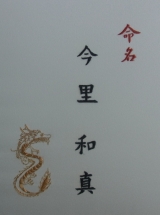 命名
今里和真